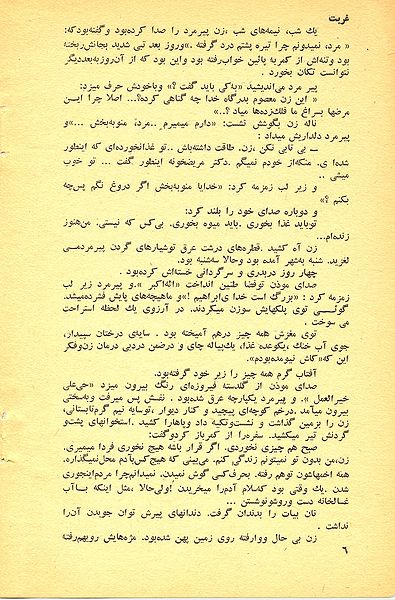 غربت
یك شب، نیمه‌های شب ،زن پیرمرد را صدا کرده‌بود وگفته‌بودکه:
« مرد، نمیدونم چرا تیره پشتم درد گرفته .»وروز بعد تبی شدید بجانش‌ریخته
بود وتنه‌اش از کمربه پائین خواب‌رفته بود واین بود که از آن‌روزبه‌بعددیگر
نتوانست تکان بخورد .
پیر مرد می‌اندیشید «به‌کی باید گفت ؟» وباخودش حرف میزد:
« این زن معصوم بدرگاه خدا چه گناهی کرده؟... اصلا چرا ایسن
مرضها بسراغ ما فلك‌زده‌ها میاد ؟..»
ناله زن بگوشش نشست: «دارم میمیرم ..مرد، منوبه‌بخش ...»و
پیرمرد دلداریش میداد :
ــ بی تابی نکن ،زن. طاقت داشته‌باش ..تو غذانخورده‌ای که اینطور
شده‌ای. منکه‌از خودم نمیگم .دکتر مریضخونه اینطور گفت ... تو خوب
میشی ..
و زیر لب زمزمه کرد: «خدایا منوبه‌بخش اگر دروغ نگم پس‌چه
بکنم ؟»
و دوباره صدای خود را بلند کرد:
توباید غذا بخوری .باید میوه بخوری. بی‌کس که نیستی. من‌هنوز
زنده‌ام...
زن آه کشید .قطره‌های درشت عرق توشیارهای گردن پیرمردمسی
لغزید. شنبه به‌شهر آمده بود وحالا سه‌شنبه بود.
چهار روز دربدری و سرگردانی خسته‌اش کرده‌بود .
صدای موذن توفضا طنین انداخت «الله‌اکبر ».و پیرمرد زیر لب
زمزمه کرد : «بزرگ است خدای‌ابراهیم !»و ماهیچه‌های پایش فشرده‌میشد.
گوئسی توی پلکهایش سوزن میکردند. در آرزوی یك لحظه استراحت
می سوخت .
توی مغزش همه چیز درهم آمیخته بود . سایه‌ی درختان سپیدار،
جوی آب خنك ،یك‌وعده غذا، یك‌پیاله چای و درضمن دردبی درمان زن‌وفکر
این که«کاش نیومده‌بودم».
آفتاب گرم همه چیز را زیر خود گرفته‌بود.
صدای موذن از گلدسته فیروزه‌ای رنگ بیرون میزد «حی‌علی
خیرالعمل ». و پیرمرد یکپارچه عرق شده‌بود . نفسش پس میرفت وبه‌سختی
بیرون میآمد .درخم کوچه‌ای پیچید و کنار دیوار ،توسایه نیم گرم‌تابستانی،
زن را بزمین گذاشت و نشست‌وتکیه داد وپاهارا کشید. استخوانهای پشت‌و
گردنش تیر میکشید. سفره‌را از کمرباز کردوگفت:
صبح هم چیزی نخوردی. اگر قرار باشه هیچ نخوری فردا میمیری.
زن،من بدون تو نمیتونم زندگی کنم. می‌بینی که هیچ‌کس‌بادم محل‌نمیگذاره.
همه اخمهاشون توهم رفته. بحرف‌کسی گوش نمیدن. نمیدانم‌چرا مردم‌اینجوری
شدن .یك وقتی بود کهسلام آدم‌را میخریدن !ولی‌حالا ،مثل اینکه بـاآب
غسالخانه دست وروشونوشستن ...
نان بیات را بدندان گرفت. دندانهای پیرش توان جویدن آن‌را
نداشت .
زن بی حال ووارفته روی زمین پهن شده‌بود. مژه‌هایش رویهم‌رفته
٦